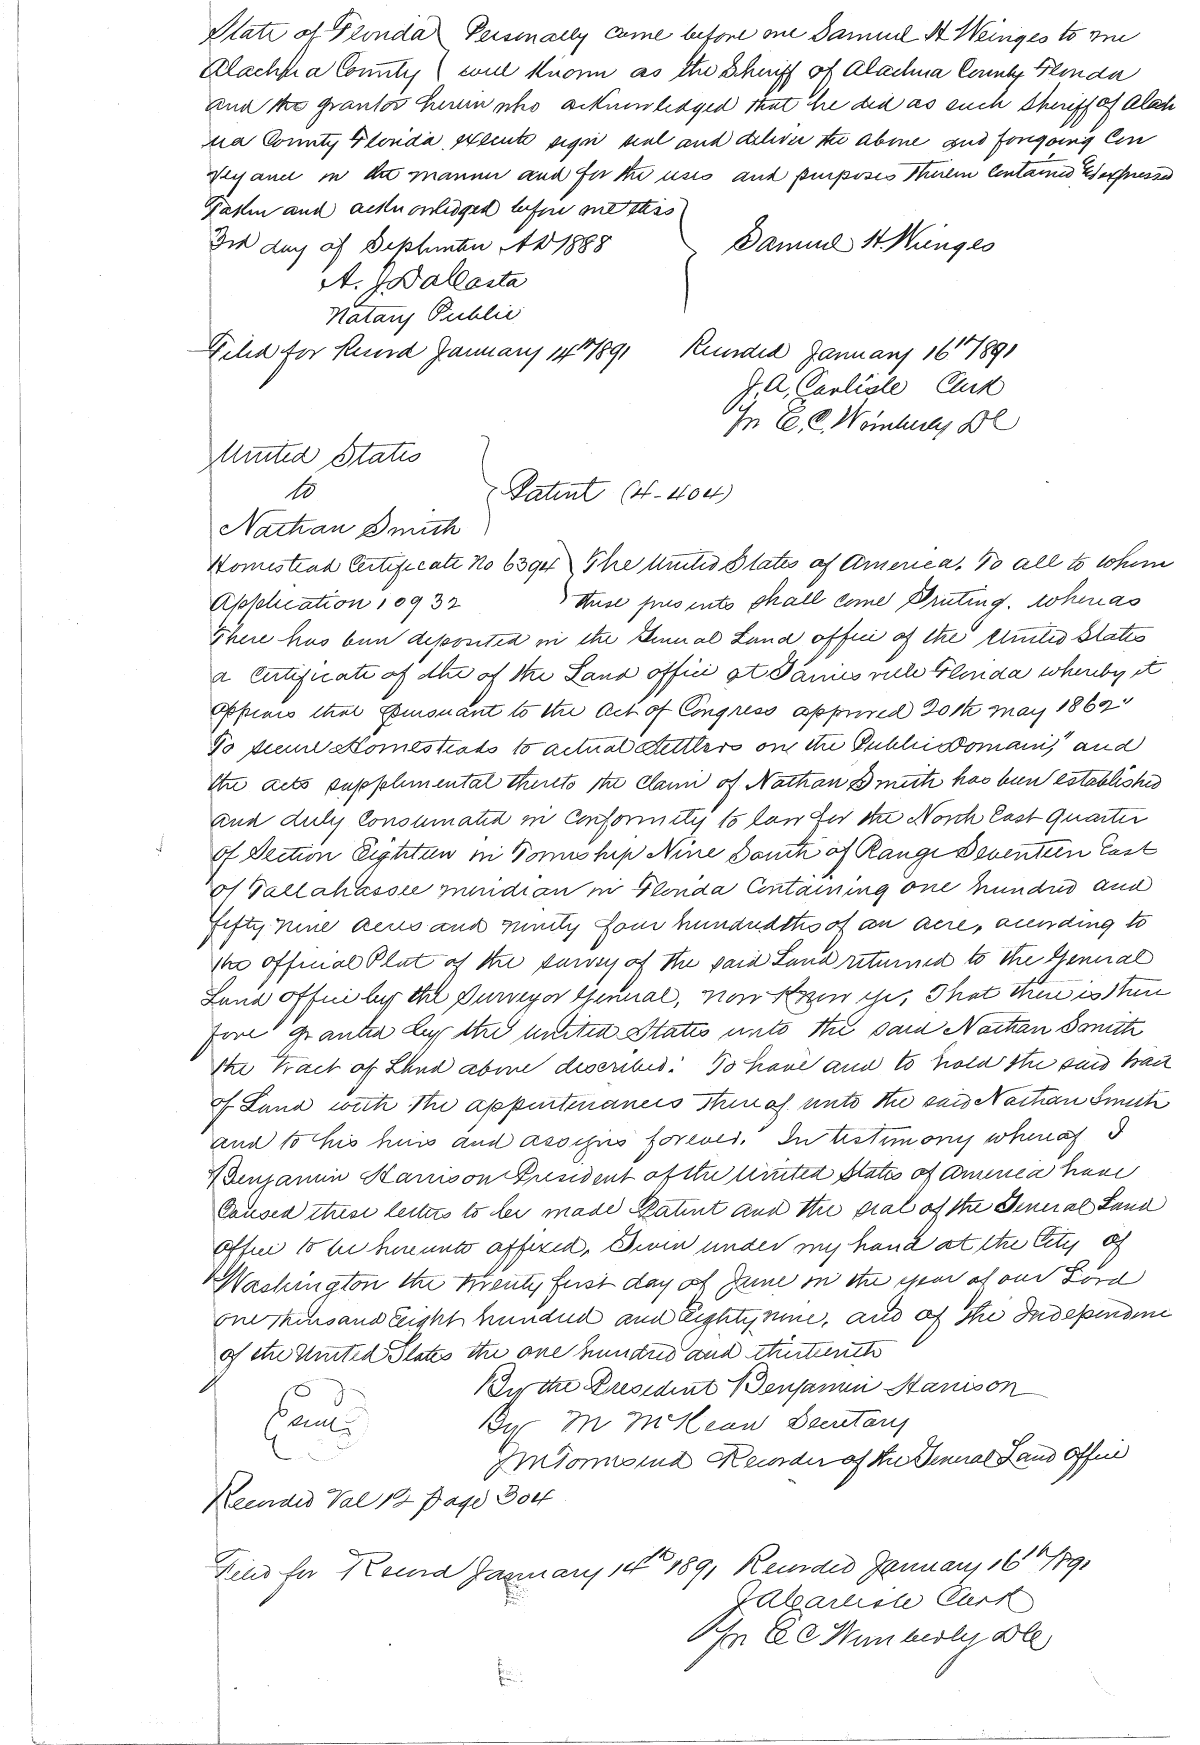 State of Florida Personally came before me Samuel H Weinges to me
Alachua County well known as the Sheriff of Alachua County Florida
and the grantor herein who acknowledged that he did as such Sheriff of Alach
ua County Florida execute sign seal and deliver the above and foregoing Con
veyance in the manner and for the uses and purposes therein contained & expressed
Taken and acknowledged before me this
3rd day of September AD 1888 Samuel H. Wienges
A. J. DaCosta
Notary Public
Filed for Record January 14th 1891 Recorded January 16th 1891
J. A. Carlisle Clerk
Pr E. C. Wimberly DC
United States
to Patent (4-404)
Nathan Smith
Homestead Certificate No 6394 The United States of America. To all to whom
Application 10932 these presents shall come Greeting. whereas
There has been deposited in the General Land office of the United States
a Certificate of the of the Land office at Gainesville Florida whereby it
appears that pursuant to the Act of Congress approved 20th May 1862"
To secure Homesteads to actual Settlers on the Public Domain," and
the acts supplimental thereto the claim of Nathan Smith has been established
and duly Consumated in Conformity to law for the North East quarter
of Section Eighteen in Township Nine South of Range Seventeen East
of Tallahassee meridian in Florida Containing one hundred and
fifty nine acres and ninety four hundredths of an acre, according to
the official Plat of the survey of the said Land returned to the General
Land office by the Surveyor General, now Know ye, That there is there
fore granted by the United States unto the said Nathan Smith
the tract of Land above described: To have and to hold the said tract
of Land with the appurtenances thereof unto the said Nathan Smith
and to his heirs and assigns forever. In testimony whereof I
Benjamin Harrison President of the United States of America have
Caused these letters to be made Patent and the seal of the General Land
Office to be hereunto affixed, Given under my hand at the City of
Washington the twenty first day of June in the year of our Lord
one thousand Eight hundred and Eighty nine, and of the Independence
of the United States the one hundred and thirteenth
By the President Benjamin Harrison
Seal By M McKean Secretary
J M Townsend Recorder of the General Land Office
Recorded Vol 12 page 304
Filed for Record January 14th 1891 Recorded January 16th 1891
J A Carlisle Clerk
Pr E C Wimberly DC